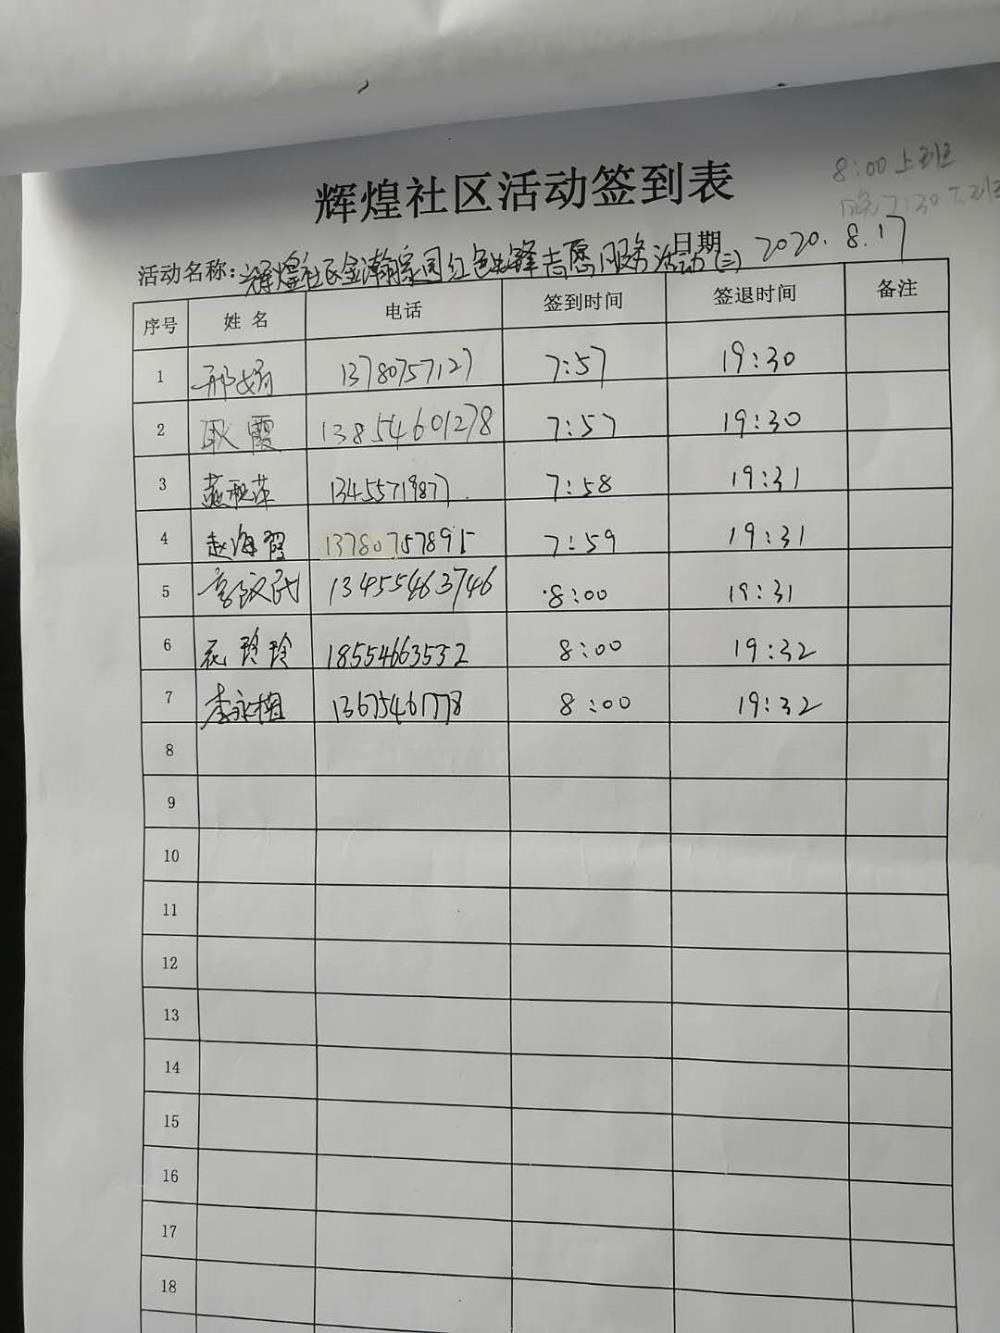 8:00上班
晚7:30下班
辉煌社区活动签到表
活动名称:辉煌社区金瀚家园红色先锋志愿服务活动(三) 日期 2020.8.17
序号 姓名 电话 签到时间 签退时间 备注
1 邢娟 13780757127 7:57 19:30
2 耿霞 13854601278 7:57 19:30
3 燕秋萍 13455719877 7:58 19:31
4 赵海 13780757895 7:59 19:31
5 13455463746 8:00 19:31
6 花玲玲 18554663532 8:00 19:32
7 李永 13675461778 8:00 19:32
8
9
10
11
12
13
14
15
16
17
18